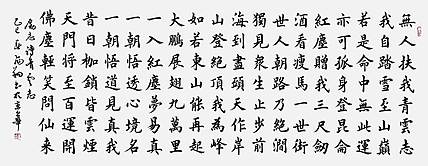 無人扶我青雲志
我自踏雪至山巔
若是命中無此運
亦可孤身登昆崙
紅塵贈我三尺劍
酒看瘦馬一世行
世人朝路乃絶淵
獨見眾生止步前
海到盡頭天作岸
山登絶頂我為峰
如若東山能再起
大鵬展翅九萬里
一入紅塵夢易真
一朝悟道見真我
昔日枷鎖皆雲煙
天門將至百運開
佛塵輕笑問仙來
詩青雲志